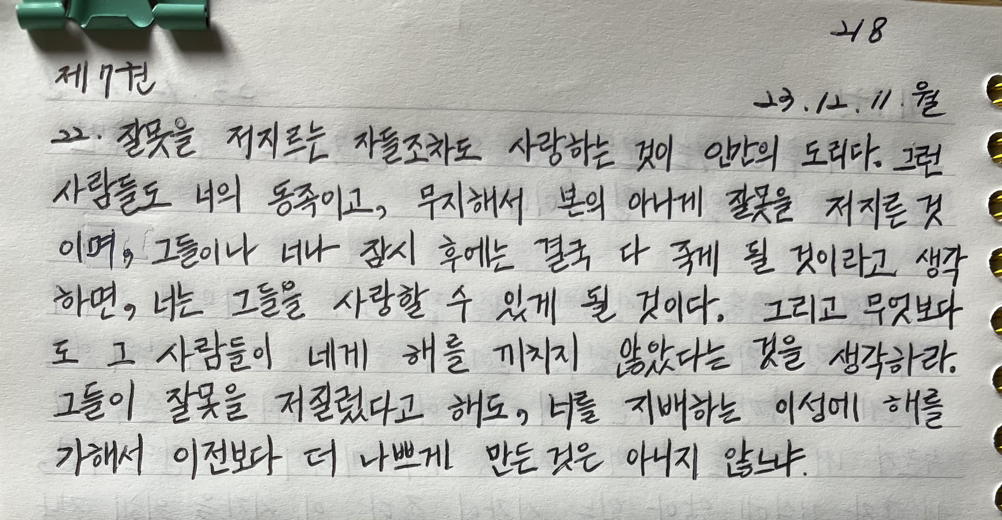 218
제 7권
23.12.11. 월
22. 잘못을 저지르는 자들조차도 사랑하는 것이 인간의 도리다. 그런
사람들도 너의 동족이고, 무지해서 본의 아니게 잘못을 저지른 것
이며, 그들이나 너나 잠시 후에는 결국 다 죽게 될 것이라고 생각
하면, 너는 그들을 사랑할 수 있게 될 것이다. 그리고 무엇보다
도 그 사람들이 네게 해를 끼치지 않았다는 것을 생각하라.
그들이 잘못을 저질렀다고 해도, 너를 지배하는 이성에 해를
가해서 이전보다 더 나쁘게 만든 것은 아니지 않느냐.